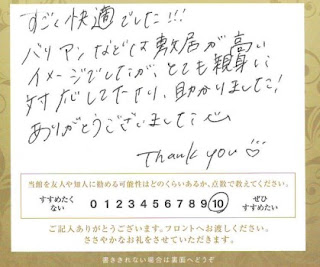 すごく快適でした!!!
バリアンなどは敷居が高い
イメージでしたが、とても親身に
対応してくださり、助かりました!
ありがとうございました
Thank you
当館を友人や知人に勧める可能性はどのくらいあるか、点数で教えてください。
すすめたく
ない
0 1 2 3 4 5 6 7 8 9 10
ぜひ
すすめたい
ご記入ありがとうございます。フロントへお渡しください。
ささやかなお礼をさせていただきます。
書ききれない場合は裏面へどうぞ